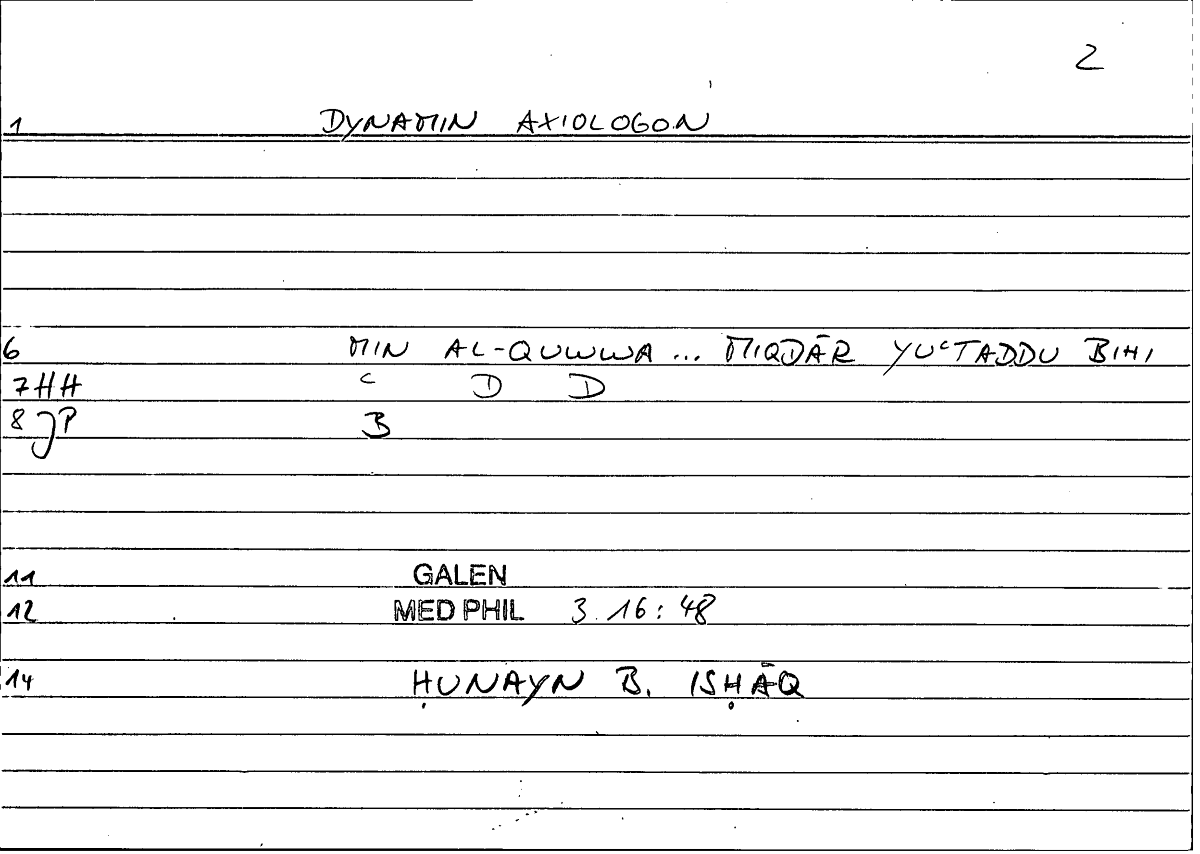 2
1 DYNAMIN AXIOLOGON
6 MIN AL-QUWWA ... MIQDĀR YUʿTADDU BIHI
7HH C D D
8 JP B
11 GALEN
12 MED PHIL 3.16:48
14 ḤUNAYN B. ISḤĀQ